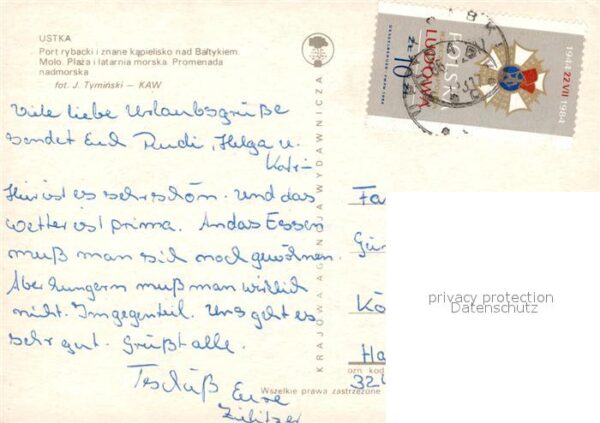 USTKA
Port rybacki i znane kąpielisko nad Bałtykiem.
Molo. Plaża i latarnia morska. Promenada
nadmorska
fot. J. Tymiński — KAW
Viele liebe Urlaubsgrüße
sendet Euch Rudi, Helga u.
Katr
Hier ist es sehr schön. Und das
Wetter ist prima. An das Essen
muß man sich noch gewöhnen.
Aber hungern muß man wirklich
nicht. Im gegenteil. Uns geht es
sehr gut. Grüßt alle.
Tschüß Eure
KRAJOWA AGENCJA WYDAWNICZA
Wszelkie prawa zastrzeżone
POLSKA
LUDOWA
ZŁ 10
1944 22 VII 1984
Fa
Kö
Ha
orn kod
privacy protection
Datenschutz